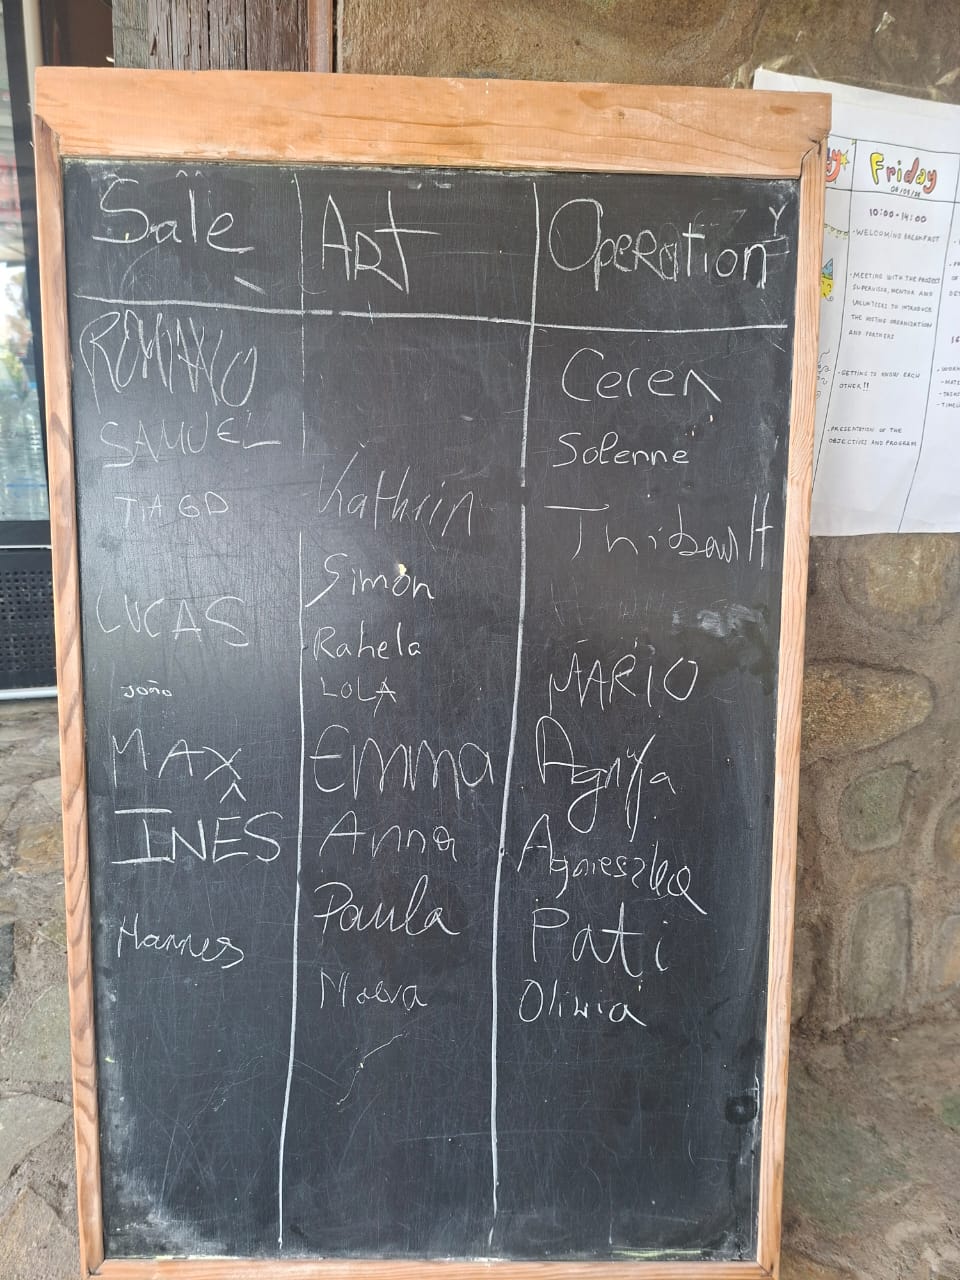 Sale
Art
Operation
ROMANO
SAMUEL
TIAGO
LUCAS
João
MAX
INÊS
Hannes
Kathrin
Simon
Rahela
LOLA
Emma
Anna
Paula
Maeva
Ceren
Solenne
Thibault
MARIO
Agnieszka
Pati
Oliwia
Friday
10:00-14:00
-WELCOMING BREAKFAST
-MEETING WITH THE PROJECT
SUPERVISOR, MENTOR AND
VOLUNTEERS TO INTRODUCE
THE HOSTING ORGANIZATION
AND PARTNERS
-GETTING TO KNOW EACH
OTHER!!
-PRESENTATION OF THE
OBJECTIVES AND PROGRAM